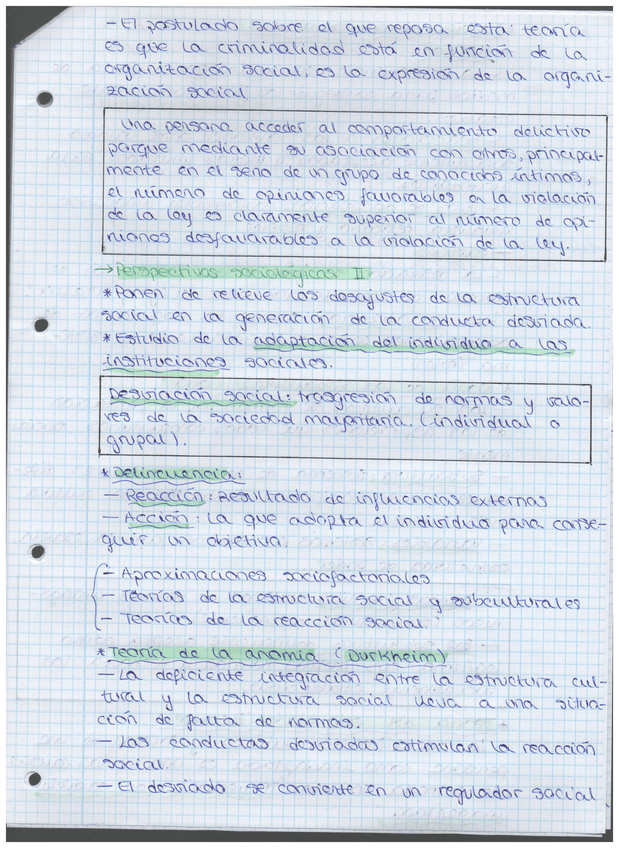 - El postulado sobre el que reposa esta teoría
es que la criminalidad está en función de la
organización social, es la expresión de la organi-
zación social
Una persona acceder al comportamiento delictivo
porque mediante su asociación con otros, principal-
mente en el seno de un grupo de conocidos íntimos,
el número de opiniones favorables a la violación
de la ley es claramente superior al número de opi-
niones desfavorables a la violación de la ley.
→ Perspectivas sociológicas II
* Ponen de relieve los desajustes de la estructura
social en la generación de la conducta desviada.
* Estudio de la adaptación del individuo a las
instituciones sociales.
Desviación social: trasgresión de normas y valo-
res de la sociedad mayoritaria. (individual o
grupal).
* Delincuencia:
- Reacción: Resultado de influencias externas
- Acción: la que adopta el individuo para conse-
guir un objetivo.
- Aproximaciones sociofactoriales
- Teorías de la estructura social y subculturales
- Teorías de la reacción social.
* Teoría de la anomia (Durkheim)
- La deficiente integración entre la estructura cul-
tural y la estructura social lleva a una situa-
ción de falta de normas.
- Las conductas desviadas estimulan la reacción
social
- El desviado se convierte en un regulador social